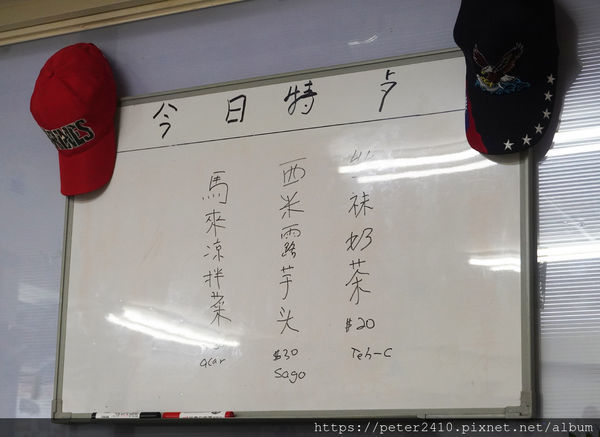 今日特卢
丝袜奶茶
$20
Teh-C
西米露芋头
$30
Sago
馬來凉拌菜
acar
https://peter2410.pixnet.net/album